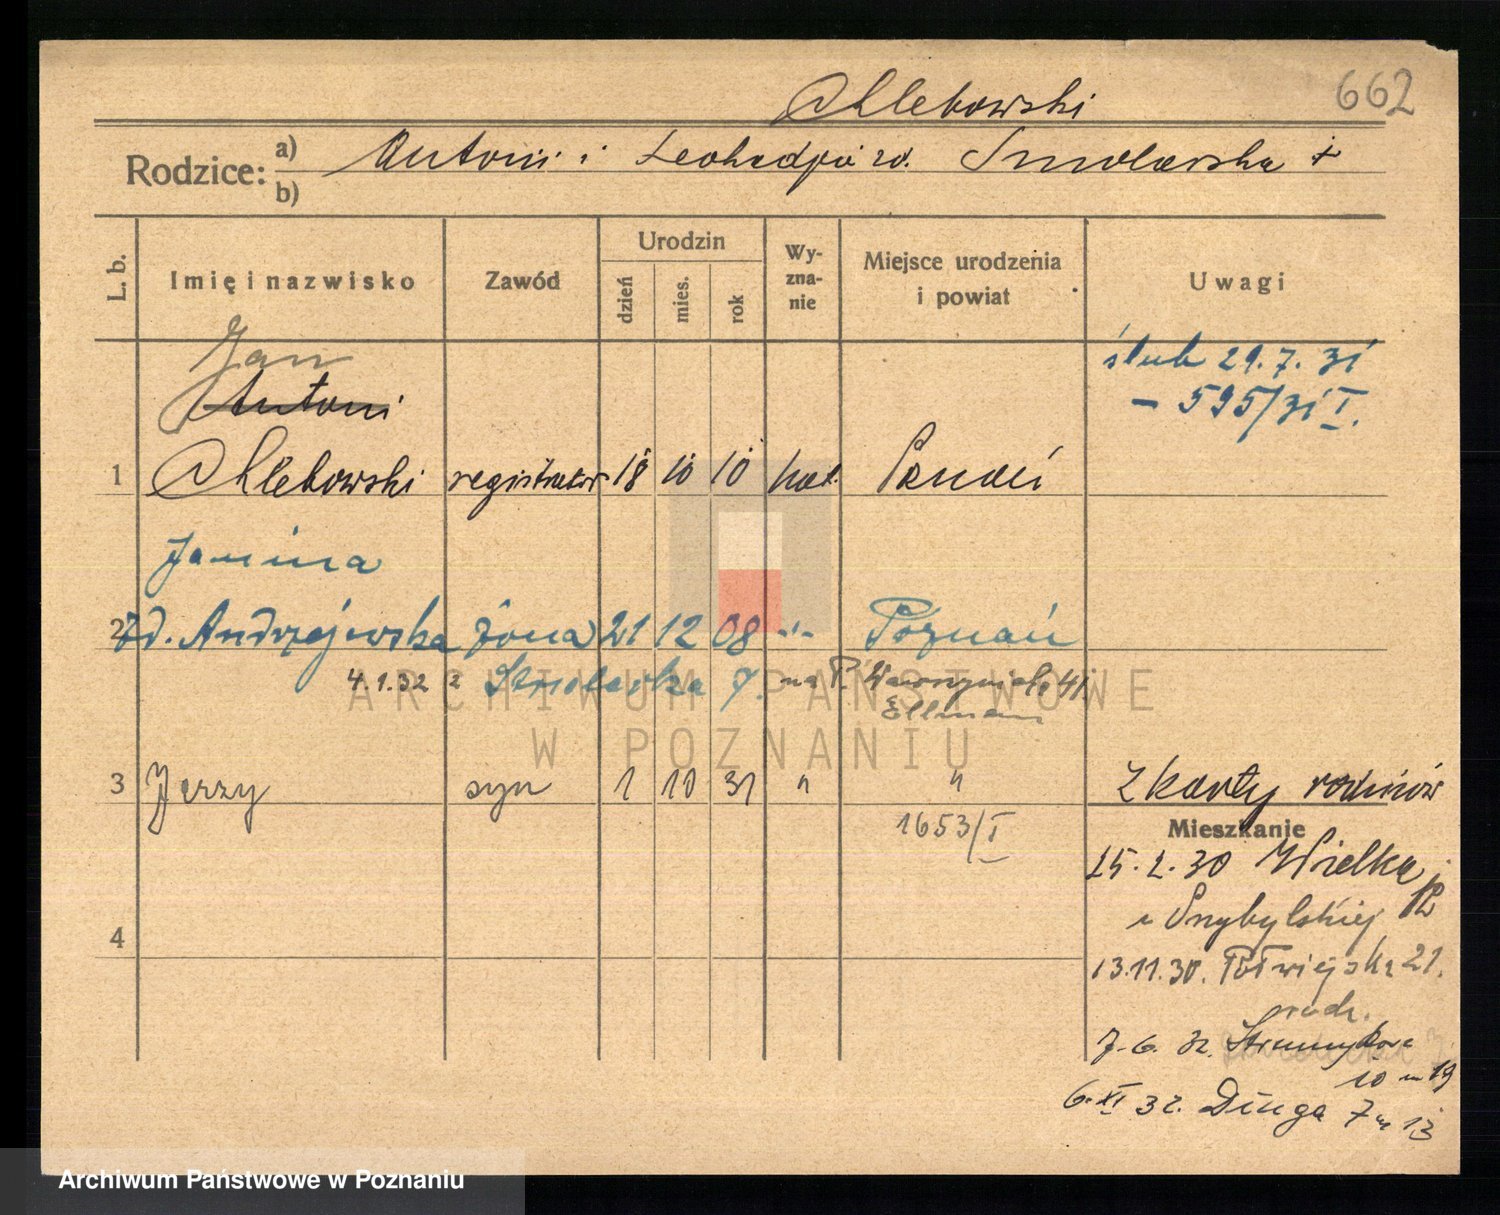 662
Chlebowski
Rodzice:
a) Antoni i Leokadja zd. Smolarska +
b)
L. b.
Imię i nazwisko
Zawód
Urodzin
dzień
mies.
rok
Wy-
zna-
nie
Miejsce urodzenia
i powiat
Uwagi
ślub 29.7.31
- 595/31 I.
Jan
Antoni
1 Chlebowski registrator 18 10 10 kat. Poznań
Janina
2 zd. Andrzejewska żona 21 12 08 -"- Poznań
4.1.32 z 7. na P. Wawrzyniaka 41
Ellman
3 Jerzy syn 1 10 31 " "
1653/I
4
z karty rodziców
Mieszkanie
25.2.30 Wielka
13.11.30. Półwiejska 21.
7.6.32. Strumykowa
10 m 19
6.XI 32. Długa 7 m 13
ARCHIWUM PAŃSTWOWE
W POZNANIU
Archiwum Państwowe w Poznaniu